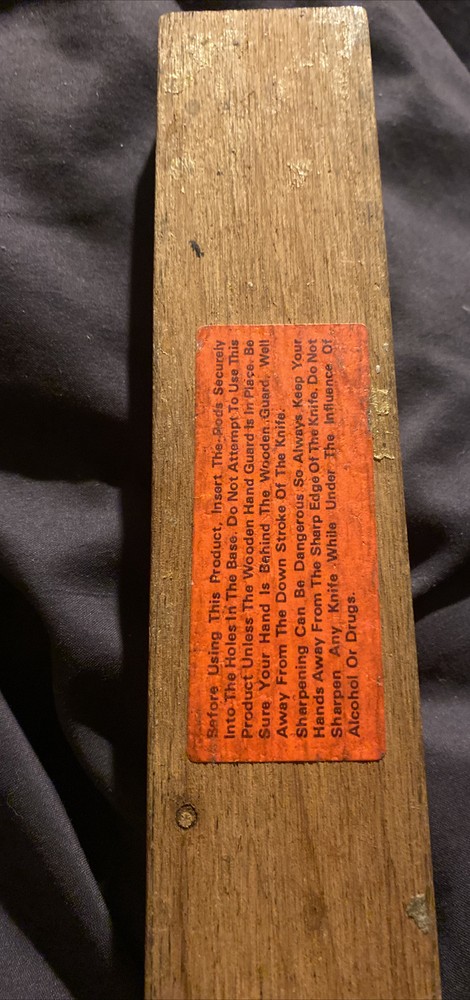 Before Using This Product, Insert The Rods Securely
Into The Holes In The Base. Do Not Attempt To Use This
Product Unless The Wooden Hand Guard is In Place. Be
Sure Your Hand Is Behind The Wooden Guard, Well
Away From The Down Stroke Of The Knife.
Sharpening Can Be Dangerous So Always Keep Your
Hands Away From The Sharp Edge Of The Knife. Do Not
Sharpen Any Knife While Under The Influence Of
Alcohol Or Drugs.